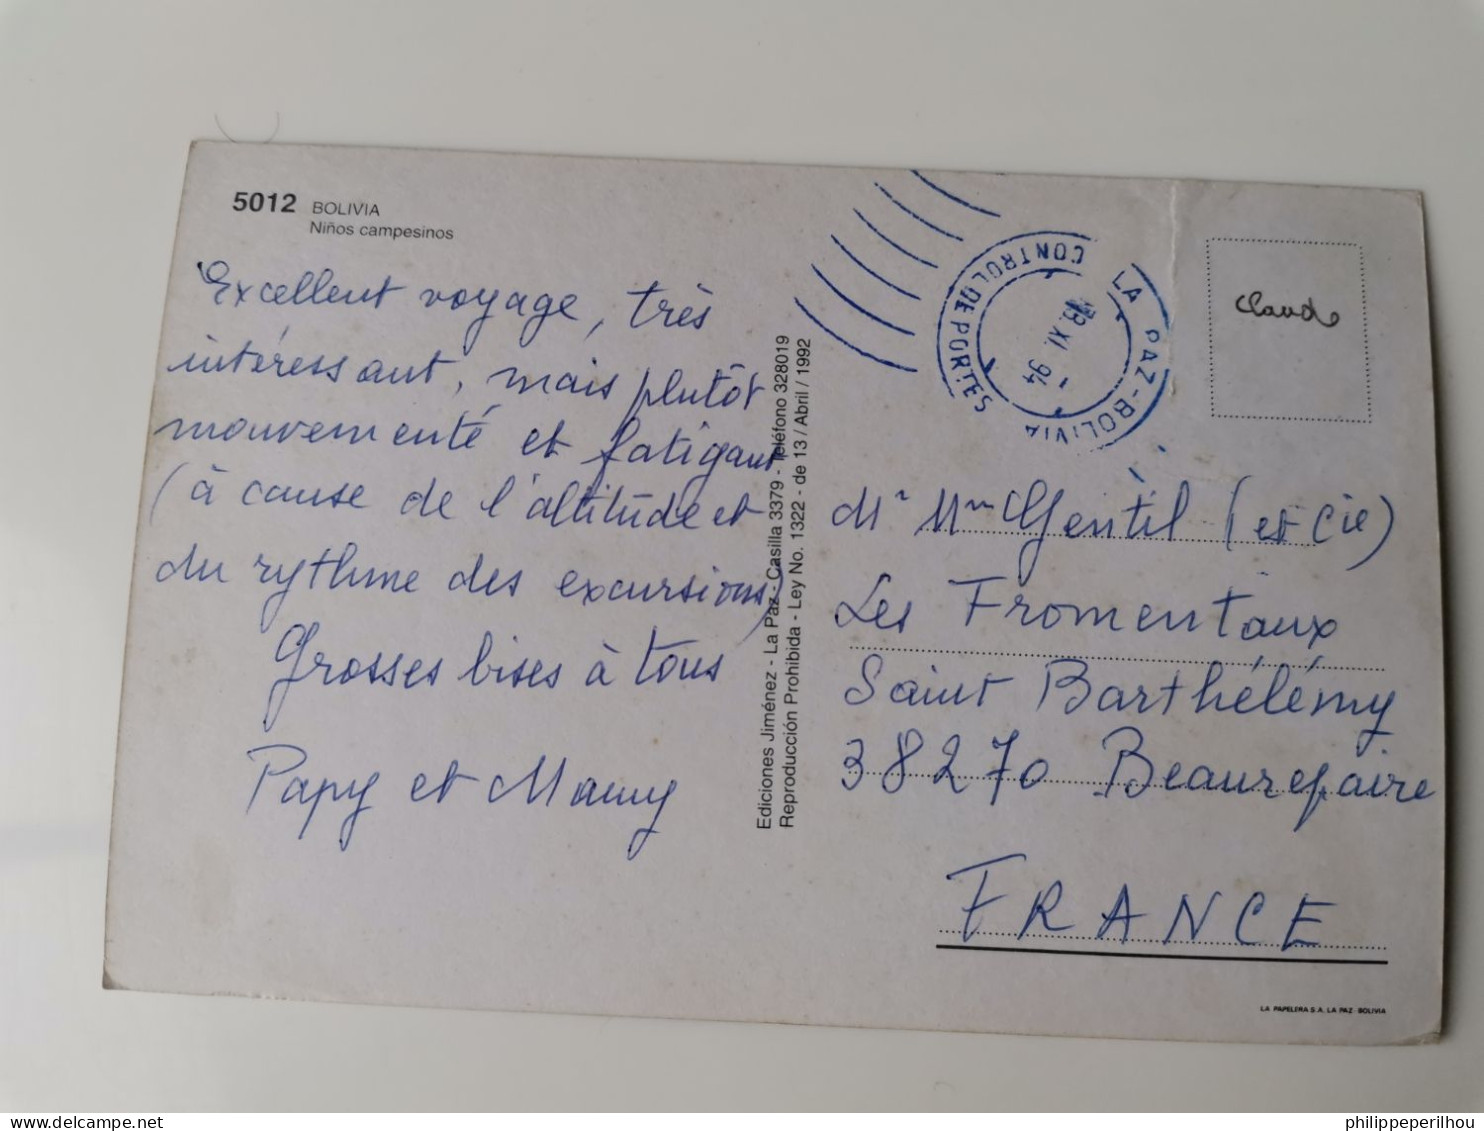 5012 BOLIVIA
Niños campesinos
Excellent voyage, très
intéressant, mais plutôt
mouvementé et fatigant
(à cause de l'altitude et
du rythme des excursions)
Grosses bises à tous
Papy et Mamy
Ediciones Jiménez - La Paz - Casilla 3379 - Teléfono 328019
Reproducción Prohibida - Ley No. 1322 - de 13 / Abril / 1992
LA PAZ - BOLIVIA
CONTROL DE PORTES
XI. 94
Claud
Mr Mme Gentil (et Cie)
Les Fromentaux
Saint Barthélémy
38270 Beaurepaire
FRANCE
LA PAPELERA S.A. LA PAZ - BOLIVIA
philippeperilhou